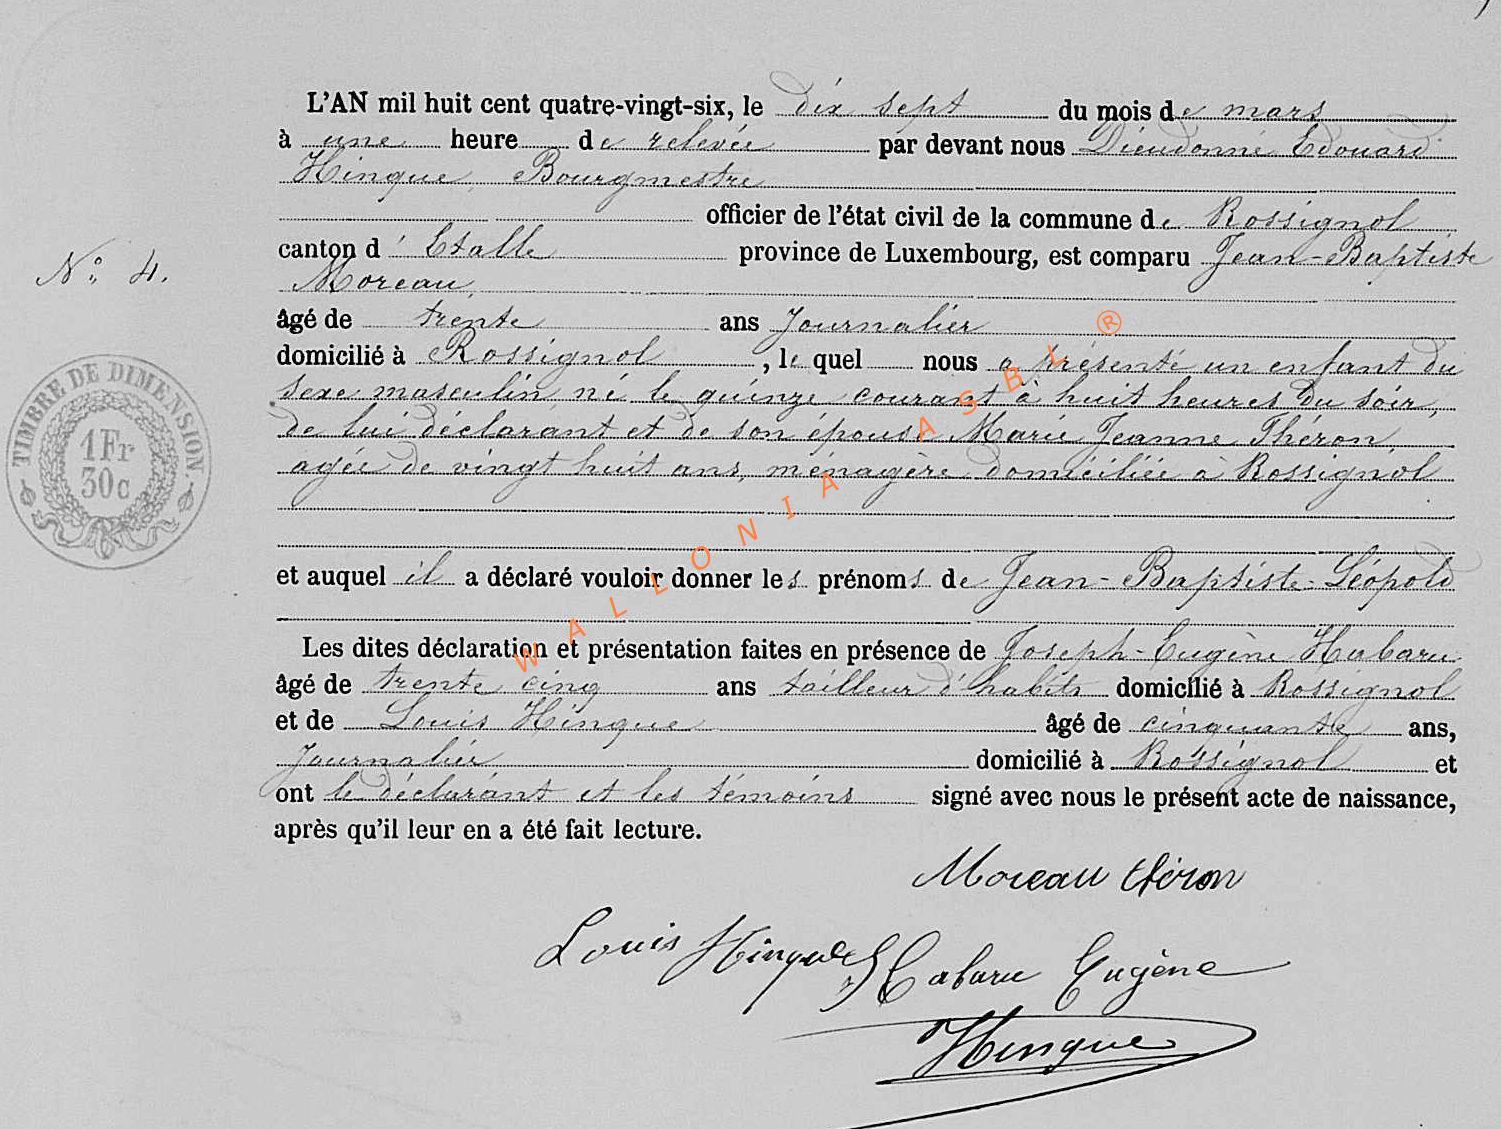 L'AN mil huit cent quatre-vingt-six, le dix sept du mois de mars
à une heure de relevée par devant nous Dieudonné Edouard
Hinque, Bourgmestre
officier de l'état civil de la commune de Rossignol,
canton d'Etalle province de Luxembourg, est comparu Jean-Baptiste
Moreau,
N° 4.
âgé de trente ans Journalier
domicilié à Rossignol, le quel nous a présenté un enfant du
sexe masculin né le quinze courant à huit heures du soir,
de lui déclarant et de son épouse Marie Jeanne Théron,
agée de vingt huit ans, ménagère domiciliée à Rossignol
TIMBRE DE DIMENSION
1Fr
30c
et auquel il a déclaré vouloir donner les prénoms de Jean-Baptiste-Léopold
Les dites déclaration et présentation faites en présence de Joseph-Eugène Habaru
âgé de trente cinq ans tailleur d'habits domicilié à Rossignol
et de Louis Hinque âgé de cinquante ans,
Journalier domicilié à Rossignol et
ont le déclarant et les témoins signé avec nous le présent acte de naissance,
après qu'il leur en a été fait lecture.
Moreau théron
Louis Hinque Habaru Eugène
Hinque
WALLONIA ASBL ®